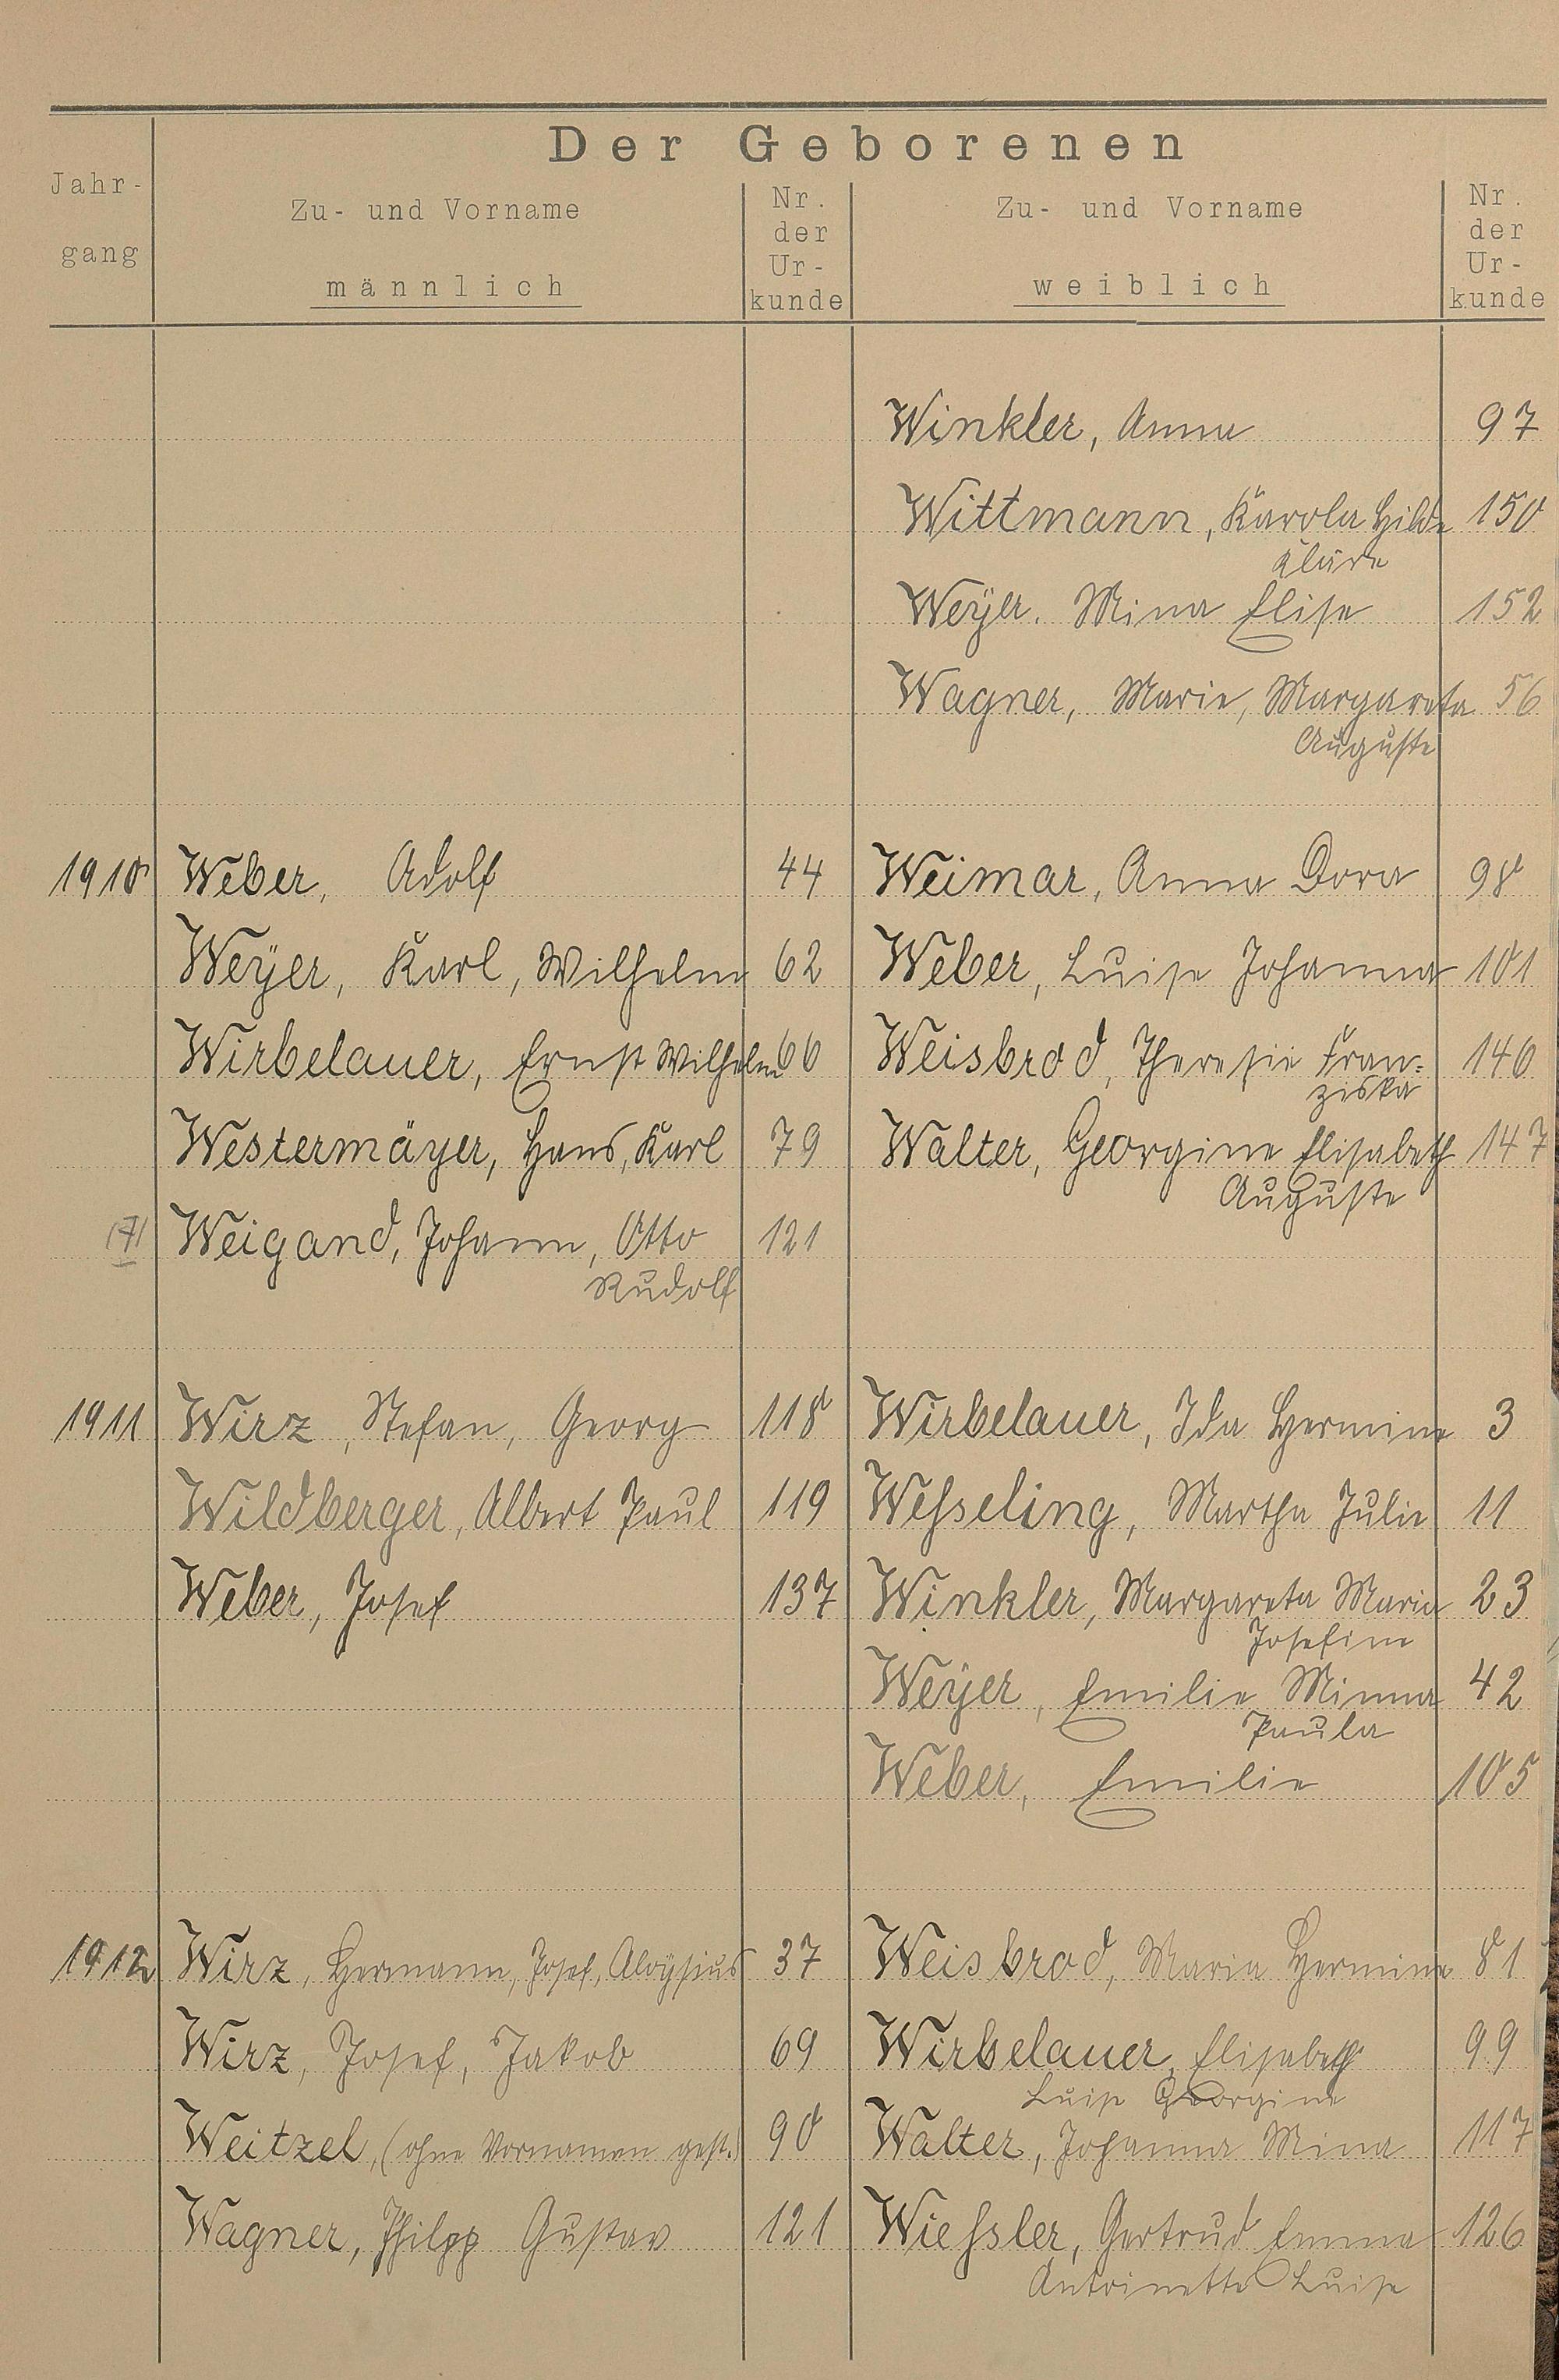 Der Geborenen
Jahr-
gang
Zu- und Vorname
männlich
Nr.
der
Ur-
kunde
Zu- und Vorname
weiblich
Nr.
der
Ur-
kunde
Winkler, Anna 97
Wittmann, Karola Hilde 150
Kläre
Weÿer. Mina Elise 152
Wagner, Marie, Margareta 56
Auguste
1910 Weber, Adolf 44 Weimar, Anna Dora 98
Weÿer, Karl, Wilhelm 62 Weber, Luise Johanna 101
Wirbelauer, Ernst Wilhelm 66 Weisbrod, Theresie Fran=
ziska 146
Westermäyer, Hans, Karl 79 Walter, Georgine Elisabeth 147
Auguste
Weigand, Johann, Otto 121
Rudolf
1911 Wirz, Stefan, Georg 118 Wirbelauer, Ida Hermine 3
Wildberger, Albert Paul 119 Weſseling, Martha Julie 11
Weber, Josef 137 Winkler, Margareta Maria 23
Josefine
Weÿer, Emilie Minna 42
Paula
Weber, Emilie 105
1912 Wirz, Hermann, Josef, Aloÿsius 37 Weisbrod, Maria Hermine 81
Wirz, Josef, Jakob 69 Wirbelauer, Elisabeth 99
Luise Georgine
Weitzel, (ohne Vornamen gest.) 90 Walter, Johanna Mina 117
Wagner, Philpp Gustav 121 Wieſsler, Gertrud Emma 126
Antoinette Luise